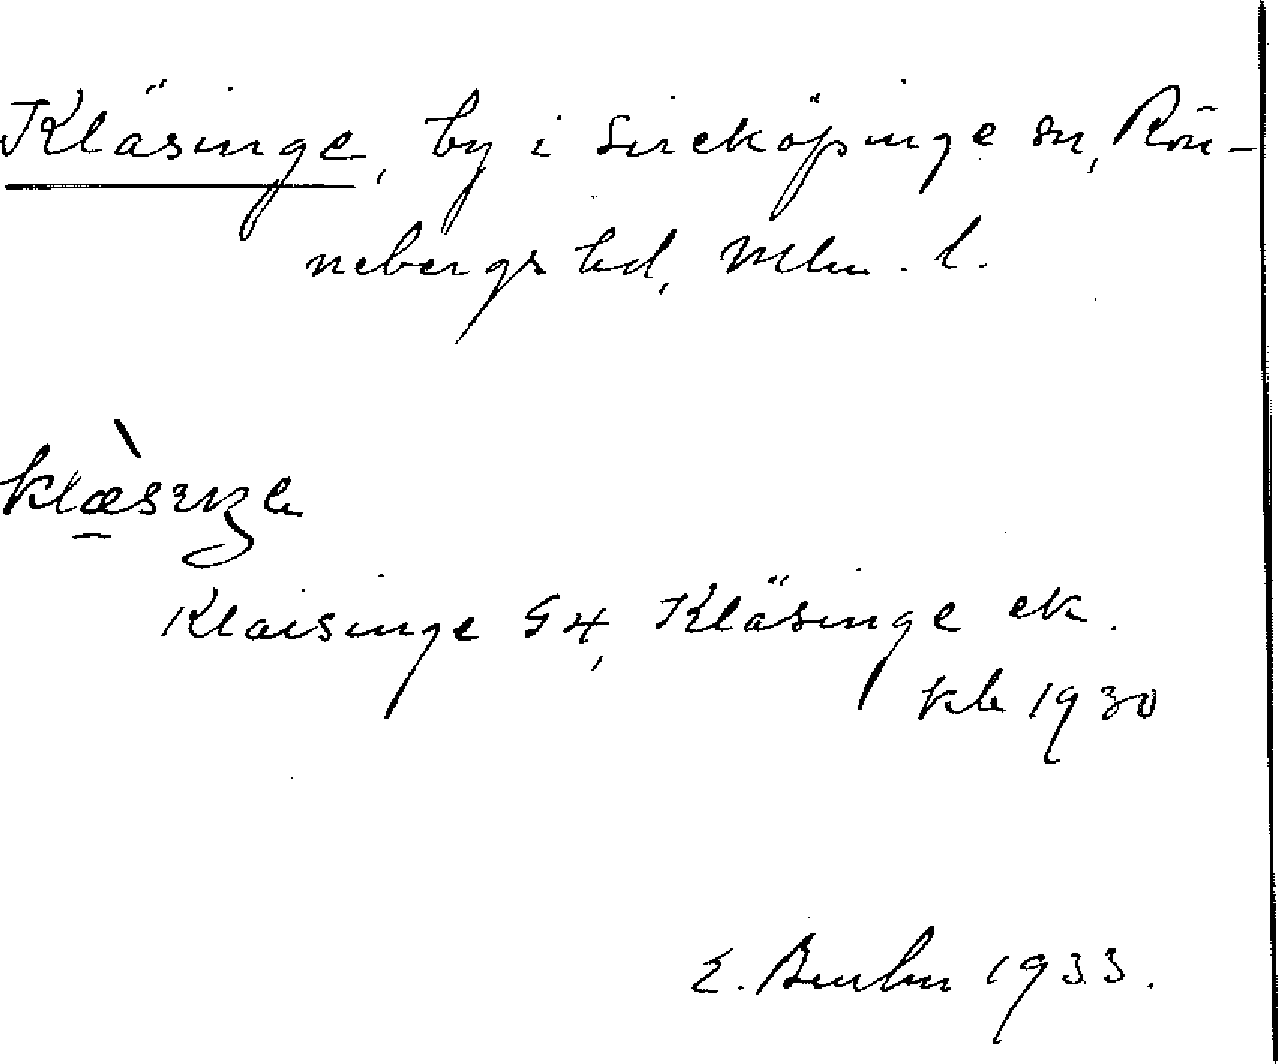 Kläsinge, by i Sireköpinge sn, Rön-
nebergs hd, Mlm. l.
klæ̀sıŋə
Klaisinge G4, Kläsinge ek.
kb 1930
E. 1933.